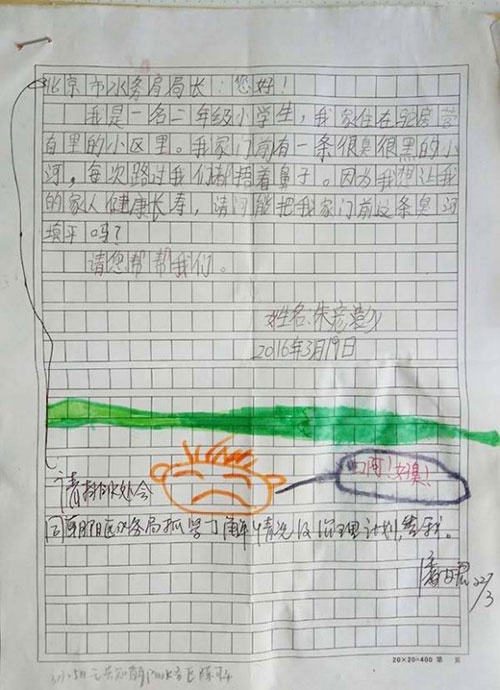 北京市水务局局长：您好！
我是一名二年级小学生，我家住在驼房营
百里的小区里。我家门前有一条很臭很黑的小
河，每次路过我们都捂着鼻子。因为我想让我
的家人健康长寿，请问能把我家门前这条臭河
填平吗？
请您帮帮我们。
姓名：朱
2016年3月19日
呵！好臭！
请排水处会
同朝阳区水务局抓紧了解情况及治理计划，答我。
22/3
20×20=400 第 页